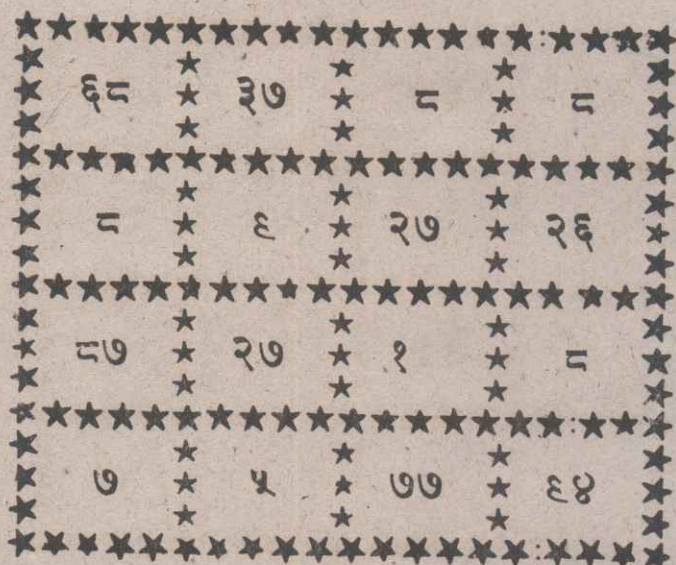 ६८ ३७ ८ ८
८ ९ २७ २६
८७ २७ १ ८
७ ५ ७७ ९४